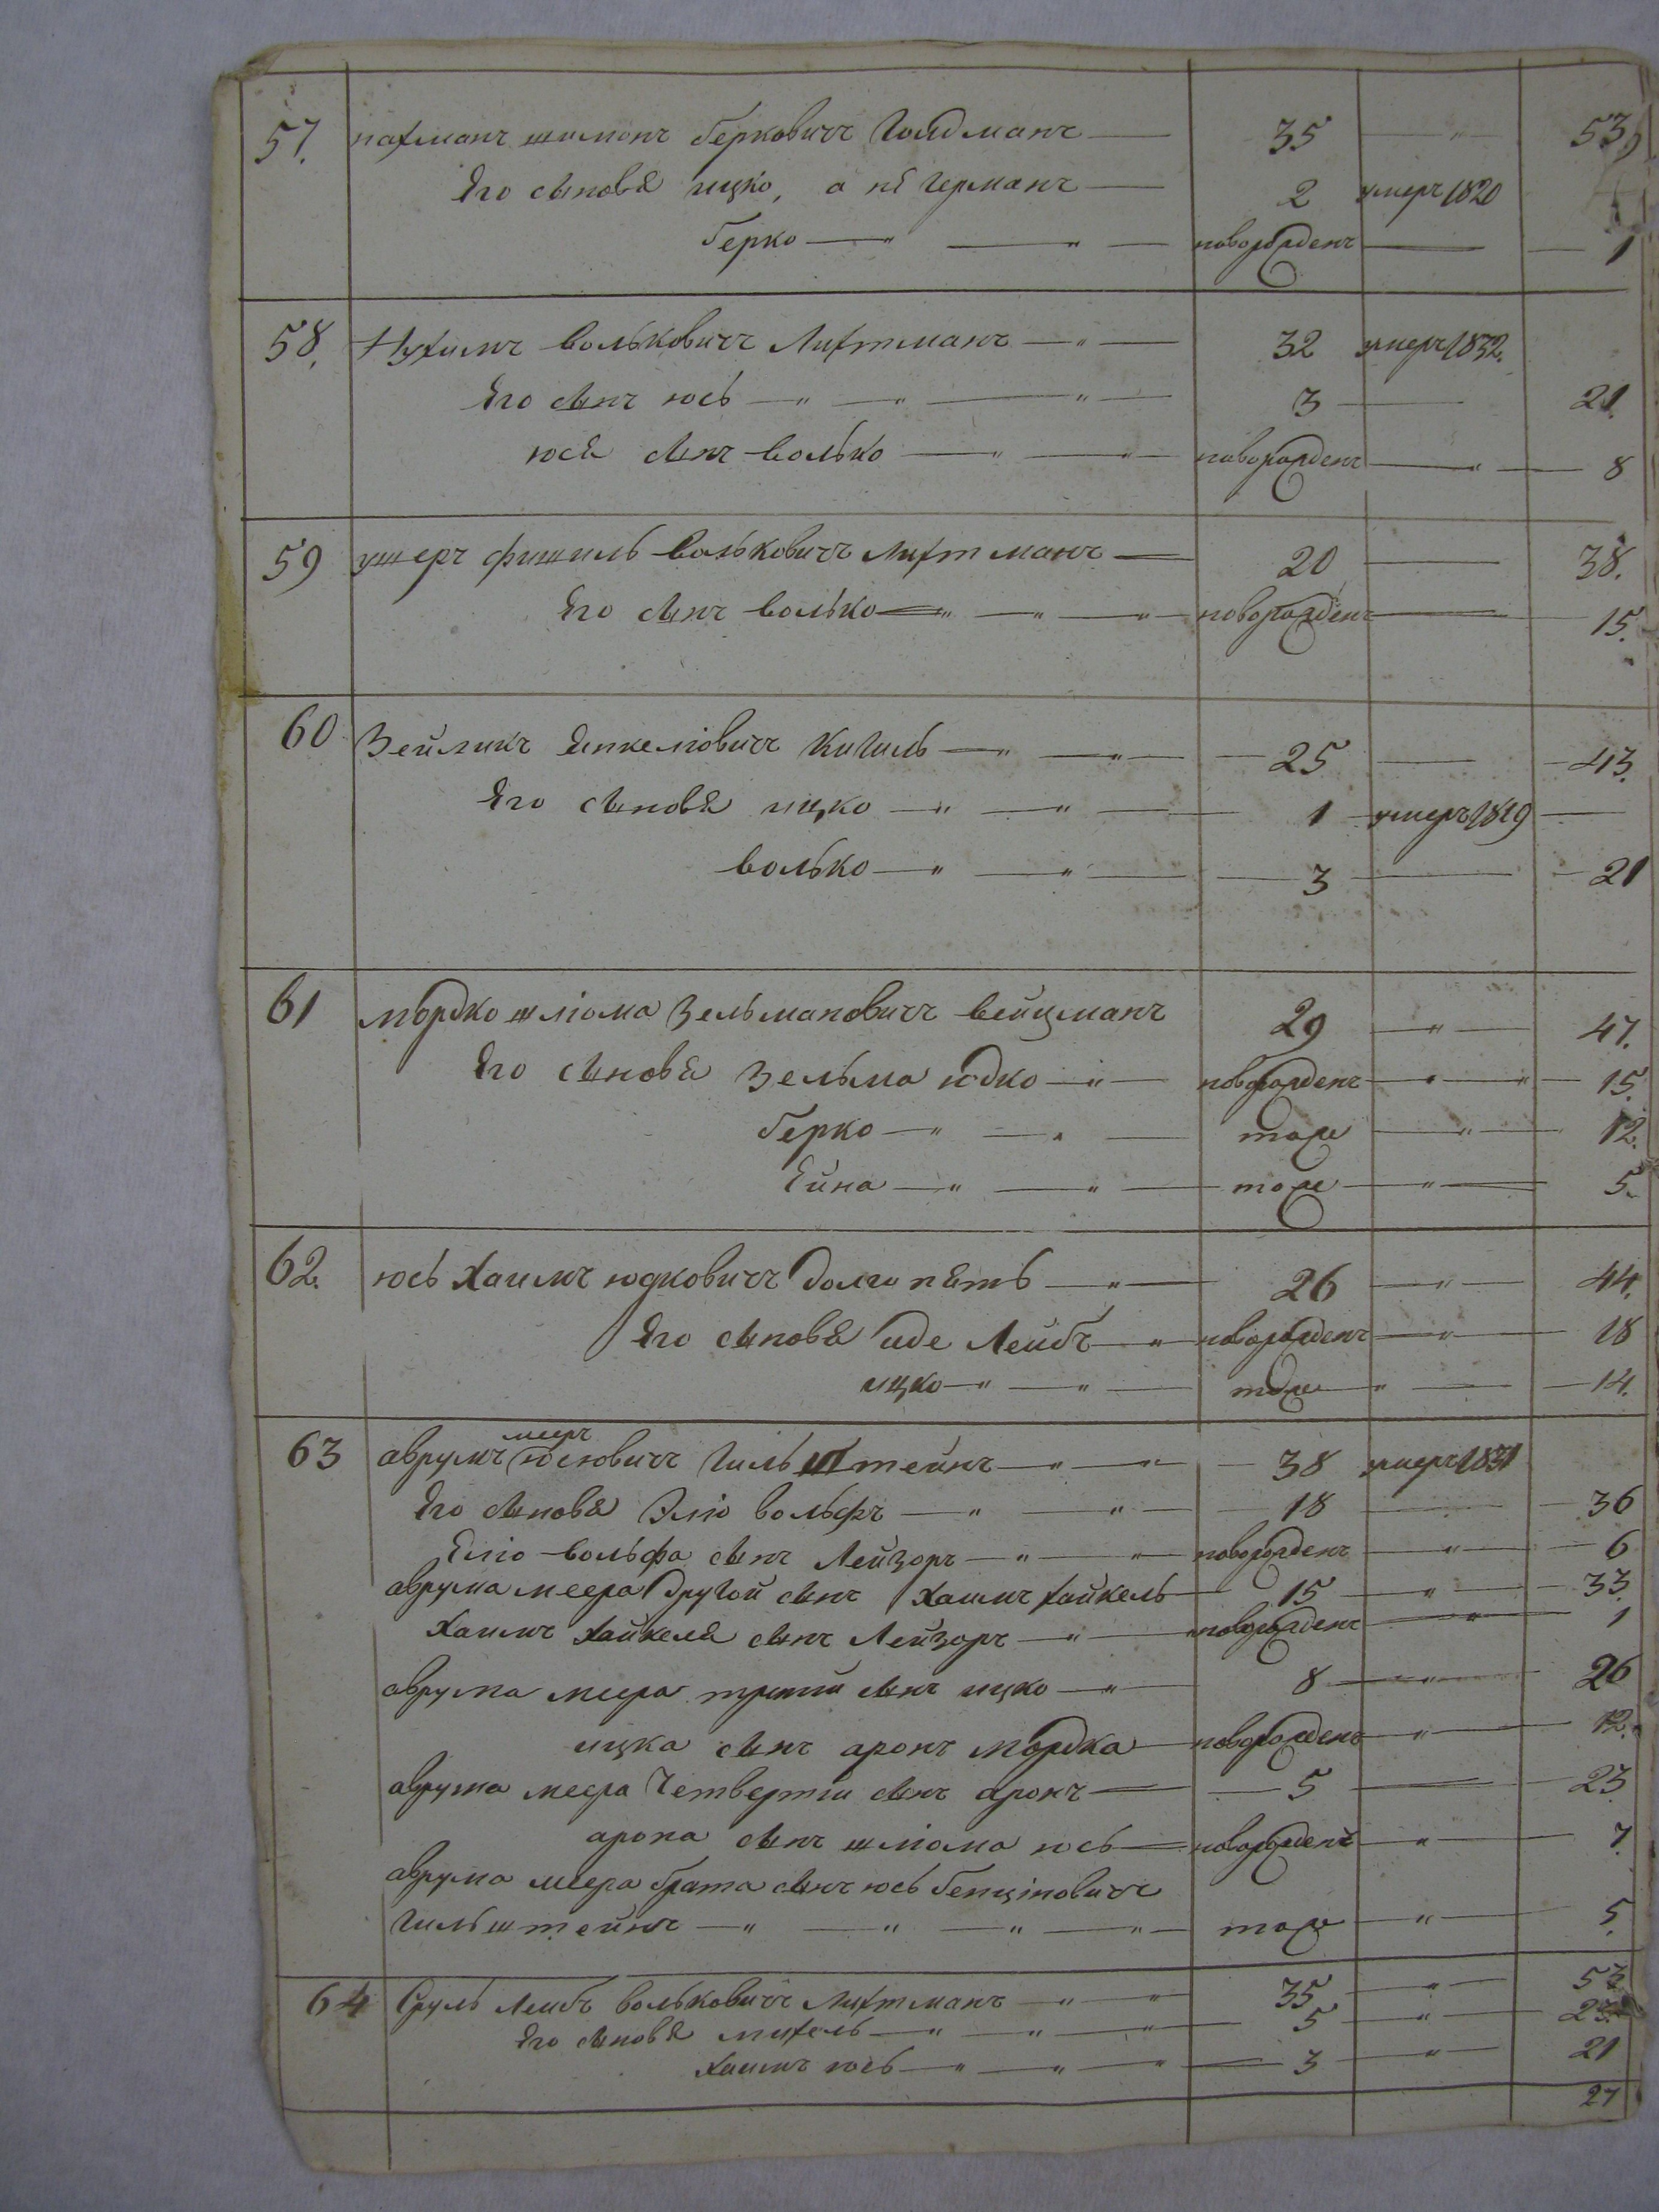 57. нахманъ шимонъ берковичъ Голдманъ — 35 — " — 53,
Его сыновя ицко, а не Германъ — 2 умеръ 1820
берко — " — " — новорожденъ — 1
58. Нухимъ Вольковичъ Лихтманъ — " — 32 умеръ 1832.
Его сынъ юсь — " — " — " — 3 — 21.
юся сынъ волько — " — " — новорожденъ — " — 8
59 ушеръ фишиль Вольковичъ Лихтманъ — 20 — 38.
Его сынъ волько — " — " — " — новорожденъ — 15.
60 Зейликъ Янкеліовичъ Кигиль — " — " — 25 — 43.
Его сыновя ицко — " — " — 1 умеръ 1819 —
волько — " — " — 3 — 21
61 мордко шліома Зельмановичъ вейцманъ 29 — " — 47.
Его сыновя Зельма юдко — " — новорожденъ — " — " — 15.
берко — " — " — тоже — " — 12.
Ейна — " — " — тоже — " — 5.
62. юсь Хаимъ юдковичъ долгипять — " — 26 — " — 44.
Его сыновя иде Лейбъ — " новорожденъ — " — 18
ицко — " — " — тоже — " — 14.
63 аврумъ мееръ юсіовичъ Гильштейнъ — " — " — 38 умеръ 1831
Его сыновя Эліо вольфъ — " — " — 18 — 36
Еліо вольфа сынъ Лейзоръ — " — " новорожденъ — " — 6
аврума меера другой сынъ Хаимъ хайкель — 15 — " — 33.
Хаимъ хайкеля сынъ Лейзоръ — " — новорожденъ — " — 1
аврума меера третій сынъ ицко — " 8 — " — 26
ицка сынъ аронъ мордка — новорожденъ — " — 12.
аврума меера четвертій сынъ аронъ — 5 — 23
арона сынъ шліома юсь — новорожденъ — " — 7.
аврума меера брата сынъ юсь бенціновичъ
Гильштейнъ — " — " — " — " — тоже — " — 5.
64 Сруль Лейбъ вольковичъ Лихтманъ — " — " 35 — " — 53
Его сыновя михель — " — " — " — 5 — " — 23.
Хаимъ юсь — " — " — " — 3 — " — 21
27